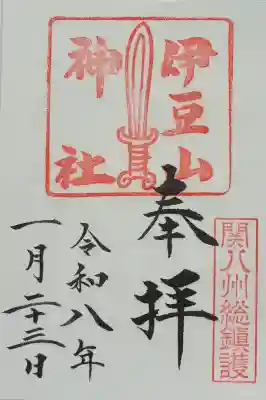 伊豆山
神社
奉拝
関八州総鎮護
令和八年
一月二十三日